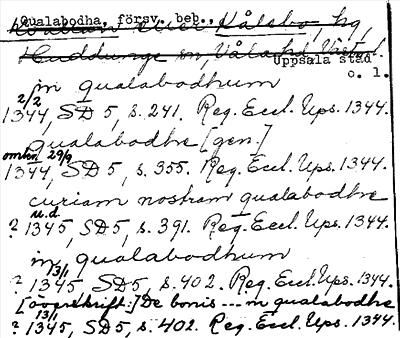 Qualabodha, försv. beb.,
Kvallsta eller Kålsbo, hg,
Huddunge sn, Våla hd, Västml.
Uppsala stad
o. l.
in qualabodhum
2/2
1344, SD 5, s. 241. Reg. Eccl. Ups. 1344.
qualabodhe [gen.]
omkr. 29/9
1344, SD 5, s. 355. Reg. Eccl. Ups. 1344.
curiam nostram qualabodhe
u.d.
? 1345, SD 5, s. 391. Reg. Eccl. Ups. 1344.
in qualabodhum
13/1
? 1345, SD 5, s. 402. Reg. Eccl. Ups. 1344.
[överskrift:] De bonis --- in qualabodhe
13/1
? 1345, SD 5, s. 402. Reg. Eccl. Ups. 1344.